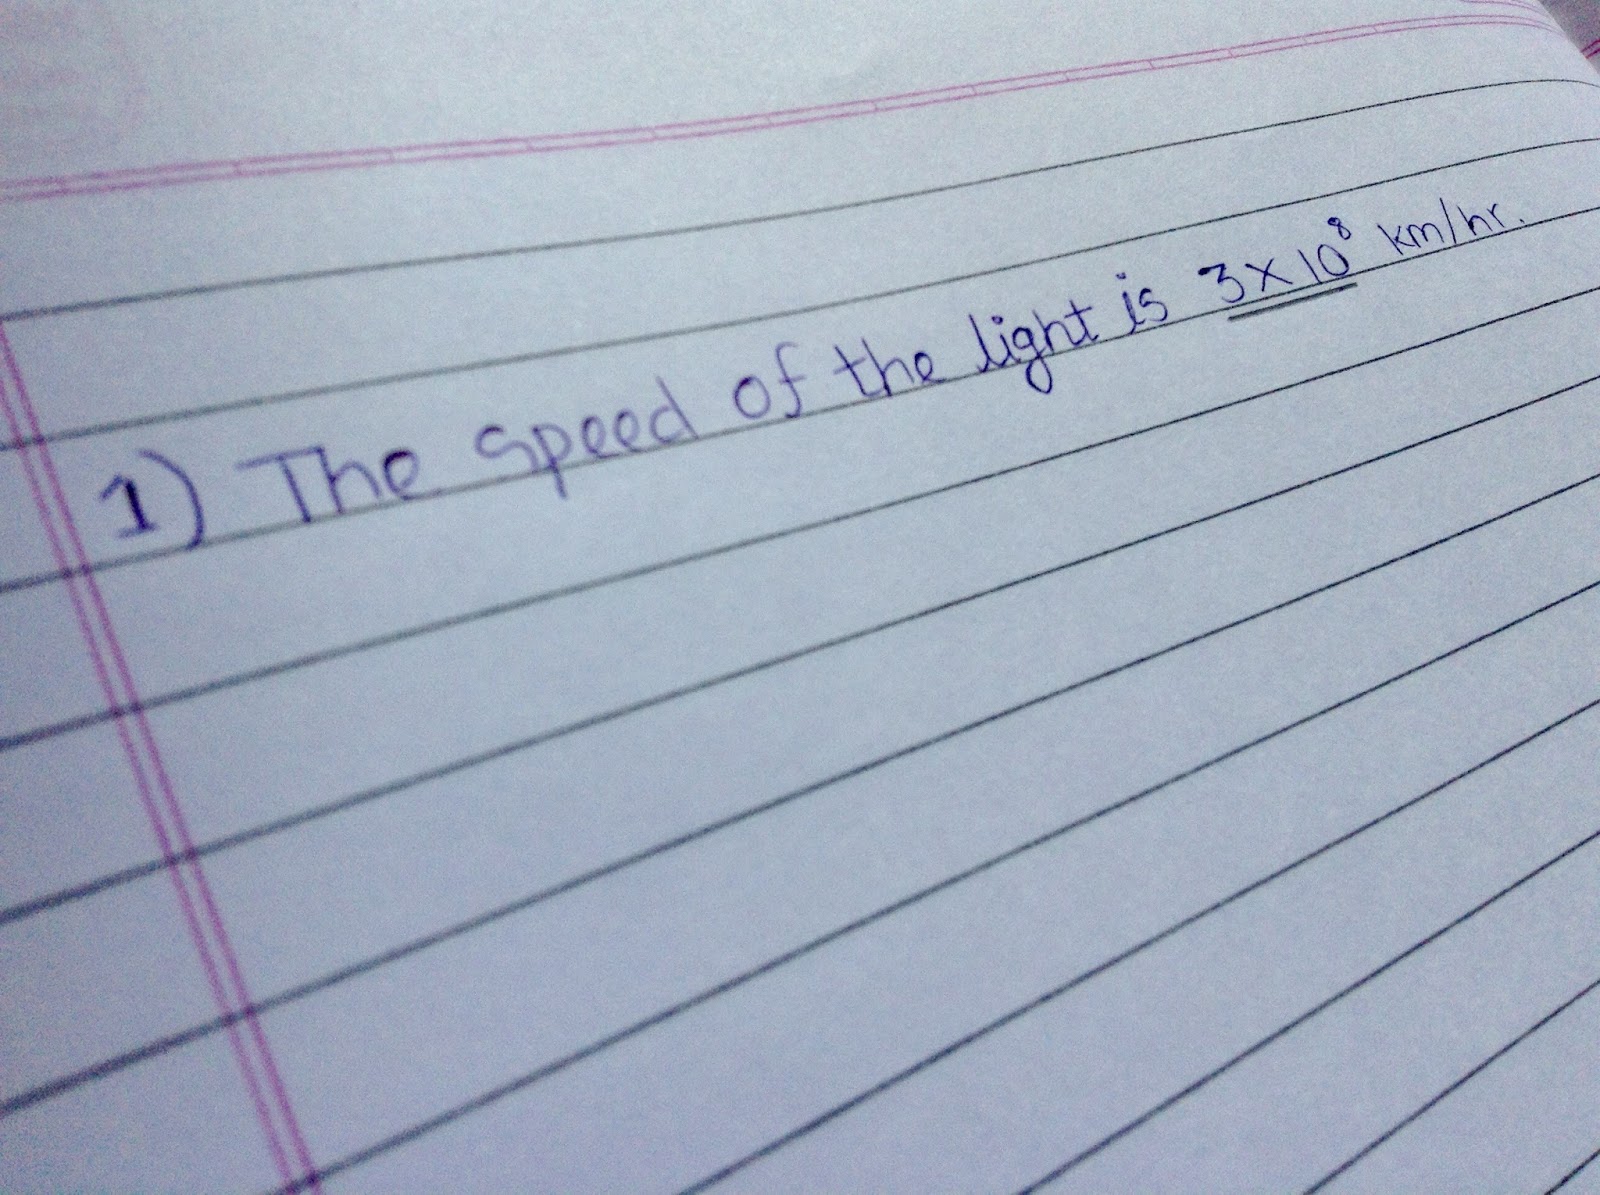 1) The speed of the light is 3×10⁸ km/hr.